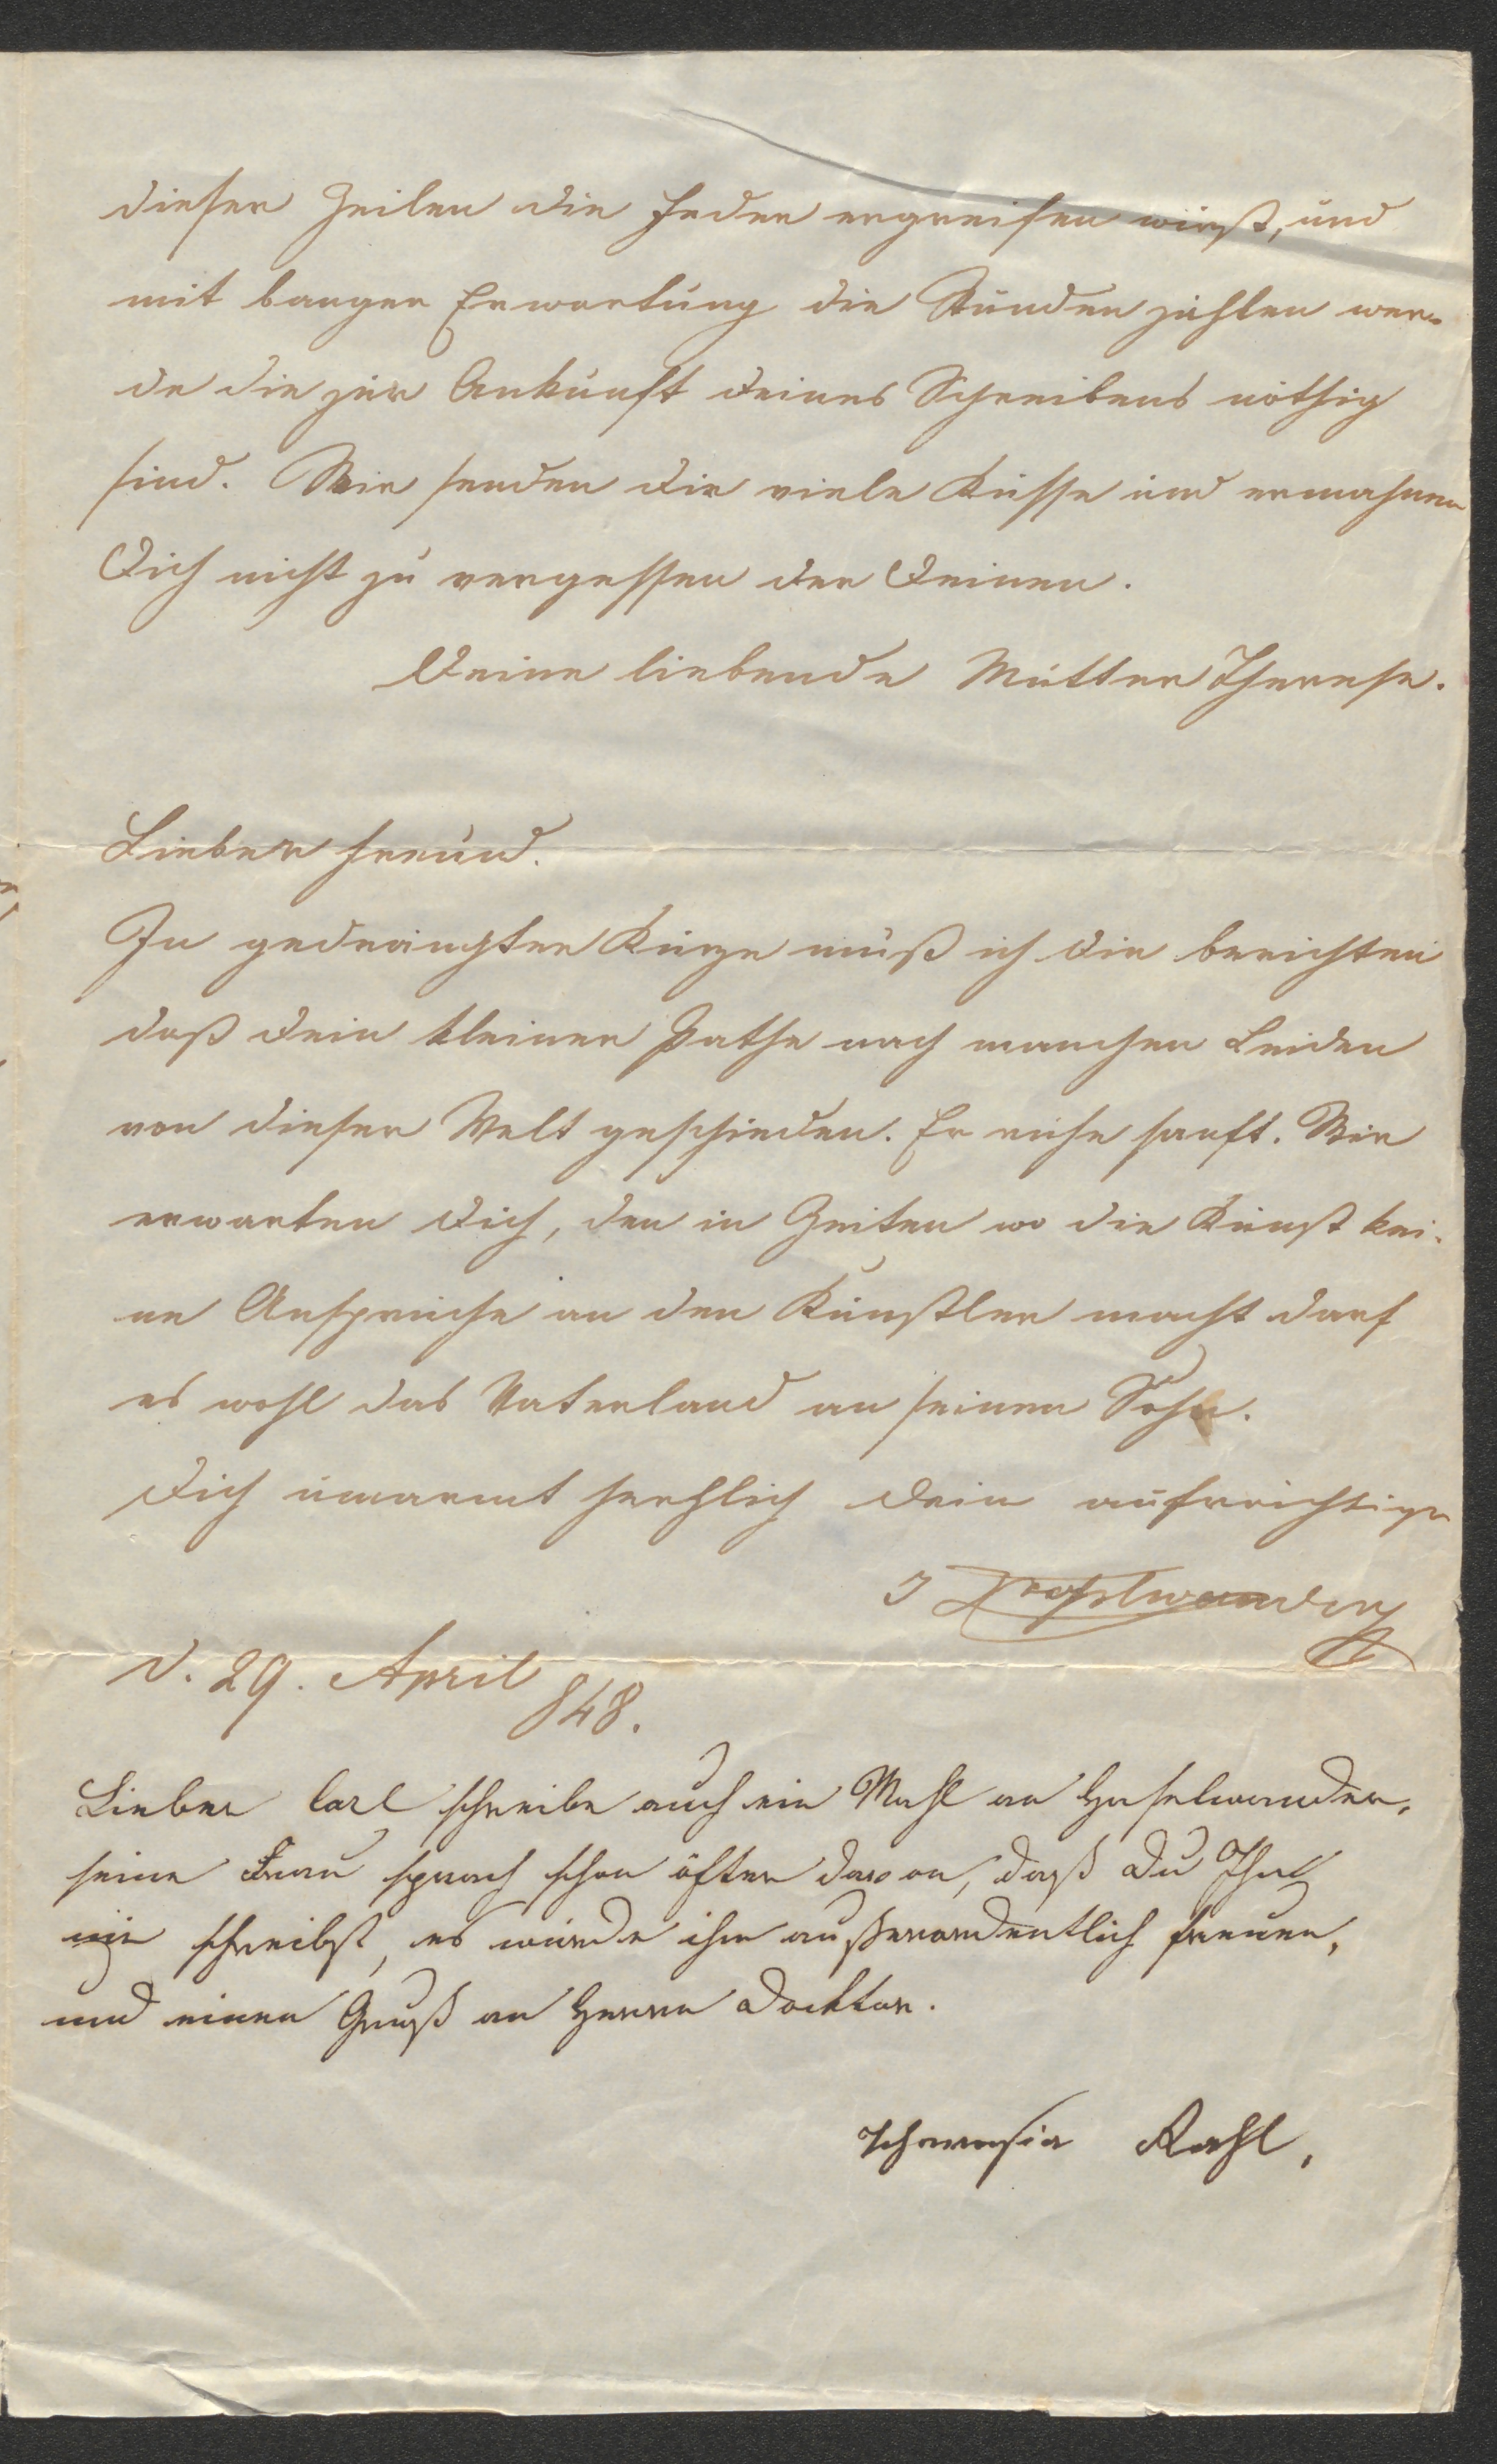 dieser Zeilen die Feder ergreifen wirst, und
mit banger Erwartung die Stunden zählen wer-
de die zur Ankunft deines Schreibens nöthig
sind. Wir senden dir viele Küsse und ermahnen
Dich nicht zu vergessen der Deinen.
Deine liebende Mutter Therese.
Lieber Freund.
In gedrängter Kürze muß ich dir berichten
daß dein kleiner Pathe nach manchen Leiden
von dieser Welt geschieden. Er ruhe sanft. Wir
erwarten dich, den in Zeiten wo die Kunst kei-
ne Ansprüche an den Künstler macht darf
es wohl das Vaterland an seinen Sohn.
Dich umarmt herzlich dein aufrichtiger
J Haselwander
d. 29. April
848.
Lieber Carl schreibe auch ein Mahl an Haselwander,
seine Frau sprach schon öfter davon, daß du Ihm
nie schreibst, es würde ihn außerordentlich freuen,
und einen Gruß an Herrn Docktor.
Theresia Rahl,